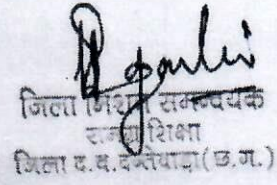 जिला मिशन समन्वयक
समग्र शिक्षा
जिला द.ब.दन्तेवाड़ा(छ.ग.)